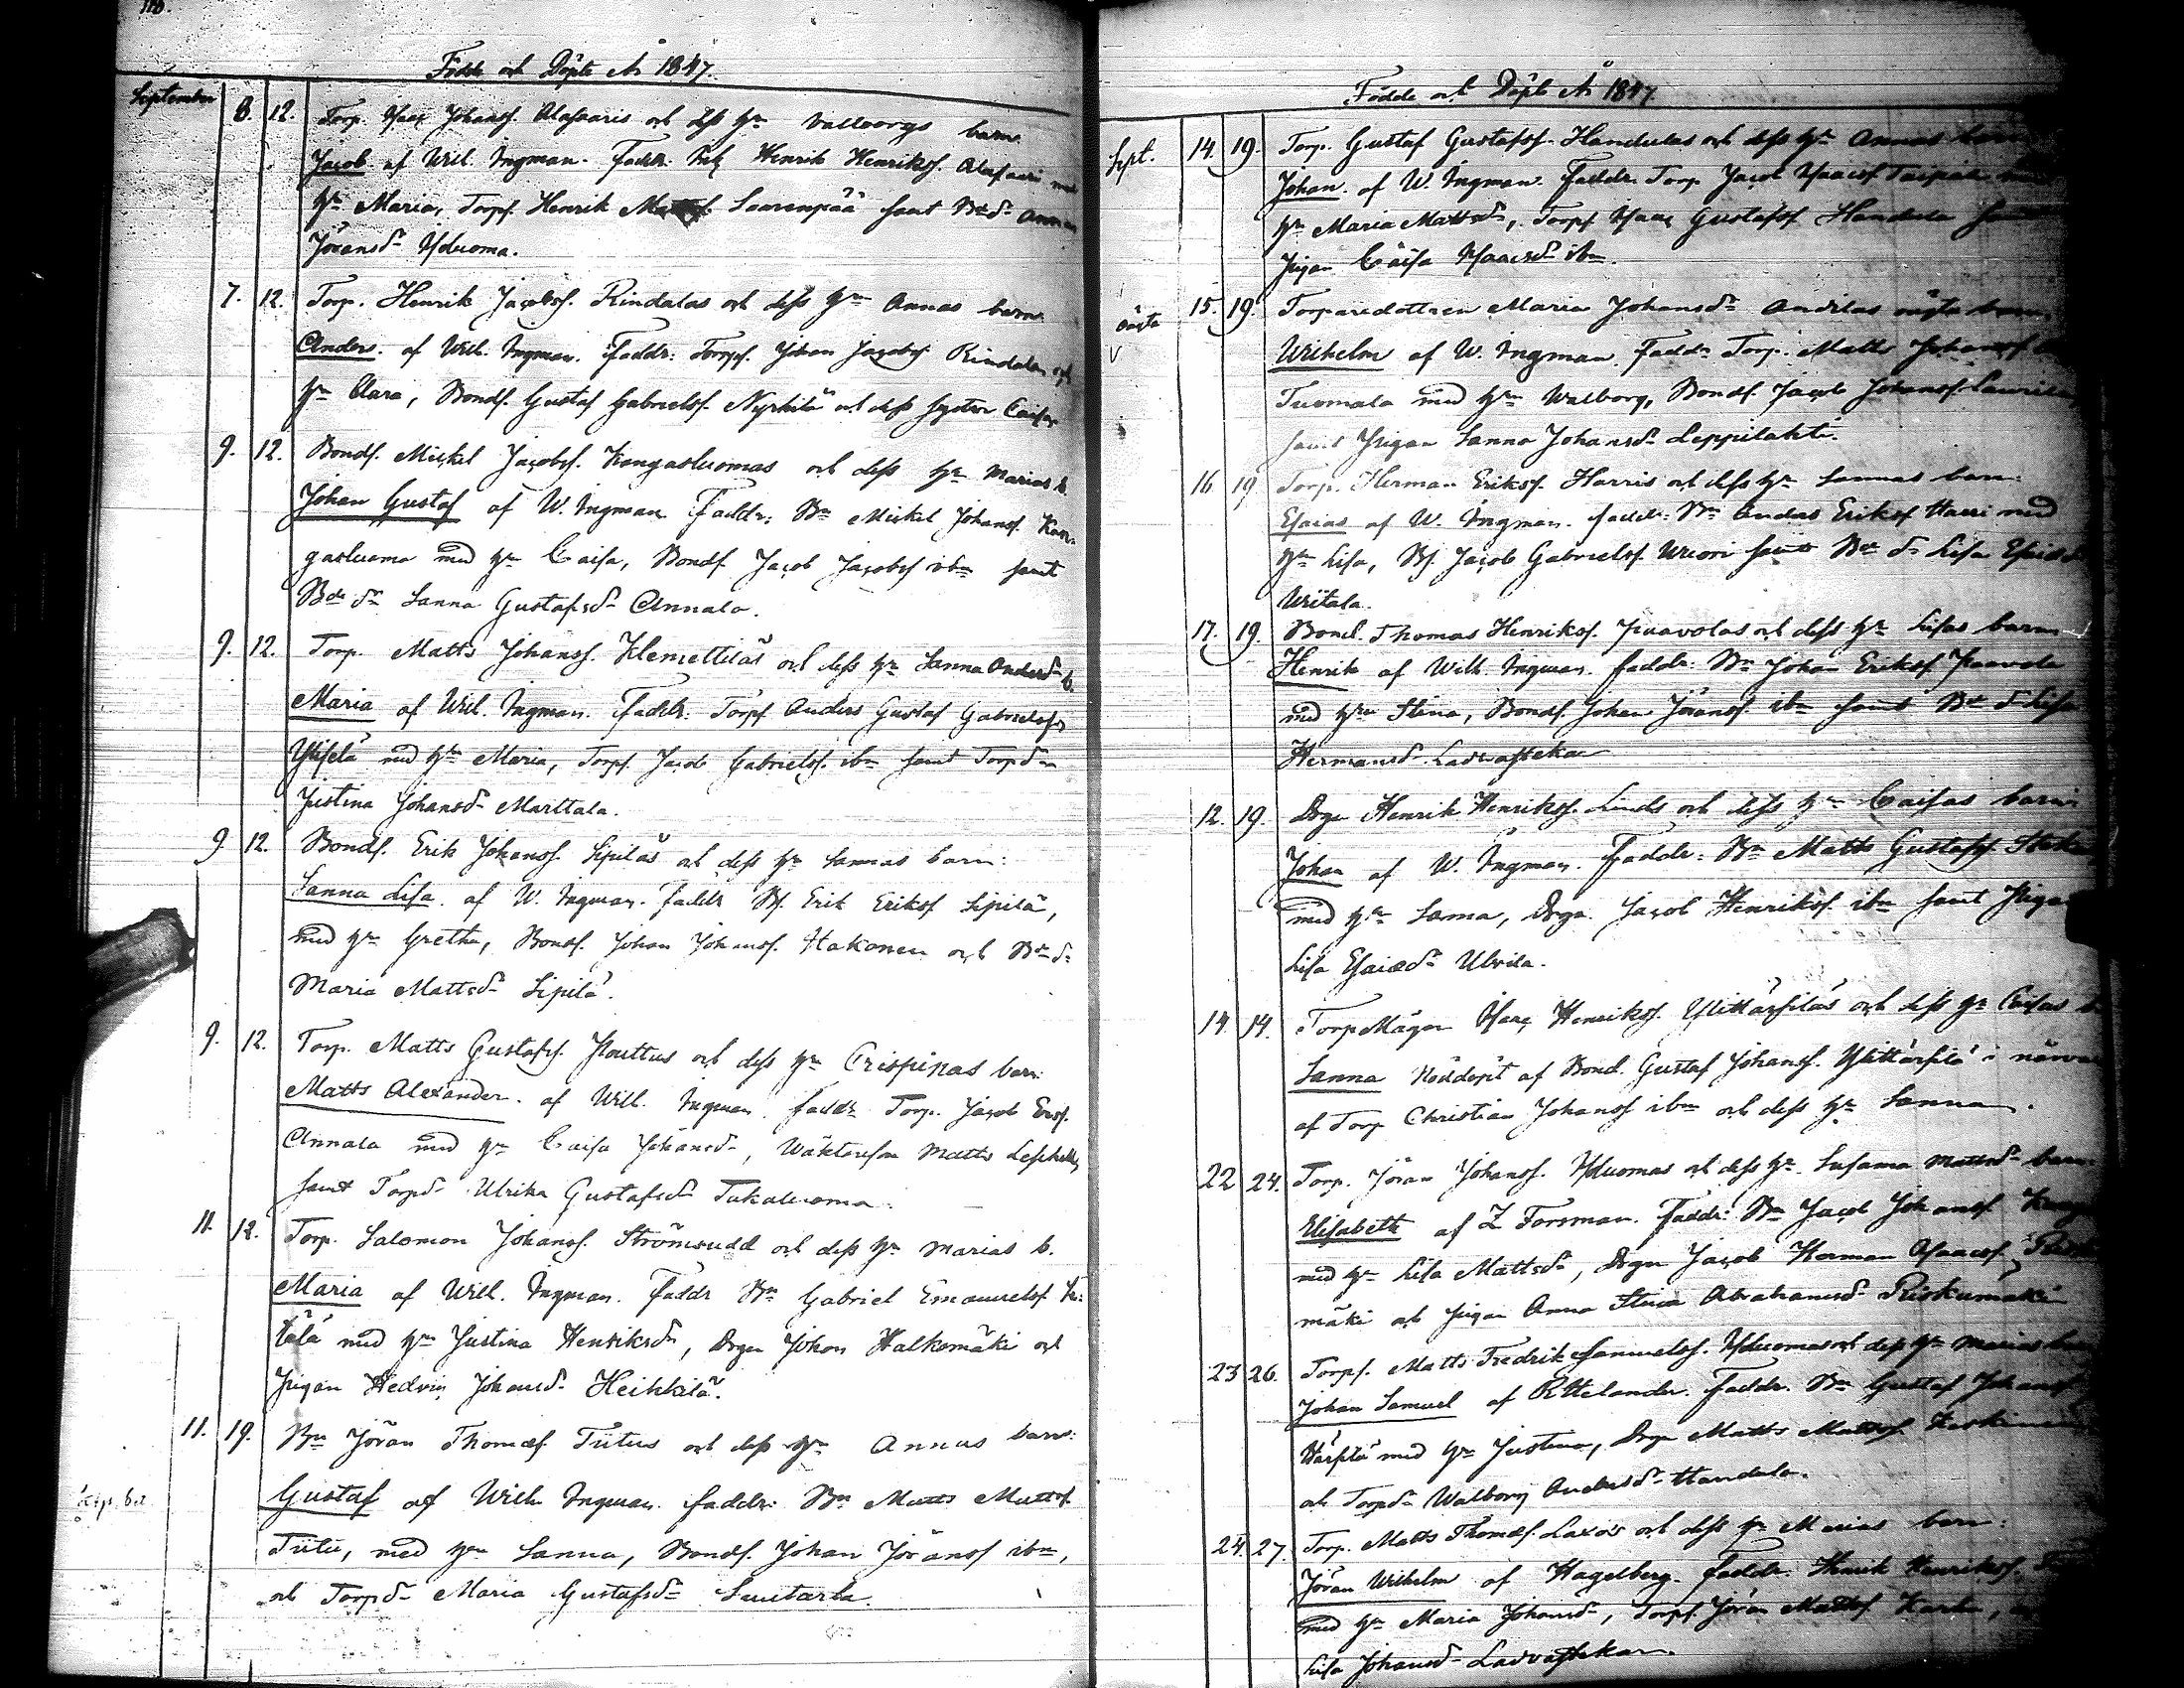 Födde och Döpte År 1847.
September 8. 12. Torp. Isaac Johansf. Alafaaris och dess h:u Vallborgs barn
Jacob af Wilh. Ingman. Faddr. Henrik Henriksf. Alafaari med
h:u Maria, Torpf. Henrik Mattsf. Saarenpää samt Bd:s d:r Anna
Jöransd:r Yliluoma.
7. 12. Torp. Henrik Jacobsf. Rindalas och dess h:u Annas barn
Anders. af Wilh. Ingman. Faddr: Torpf. Johan Jacobsf Rindala
h:u Clara, Bondf. Gustaf Gabrielsf. Nyrhilä och dess syster Caisa
9. 12. Bondf. Mickel Jacobsf. Kangasluomas och dess h:u Marias b.
Johan Gustaf af W. Ingman. Faddr: Bn Mickel Johansf. Kan-
gasluoma med h:u Caisa, Bondf. Jacob Jacobsf ibm samt
Bds d:r Sanna Gustafsd:r Annala.
9. 12. Torp. Matts Johansf. Klemettiläs och dess h:u Sanna Andersd:r b.
Maria af Wilh. Ingman. Faddr: Torpf Anders Gustaf Gabrielsf
med h:u Maria, Torpf. Jacob Gabrielsf. ibm samt Torpd:r
Justina Johansd:r Marttala.
9 12. Bondf. Erik Johansf. Sipiläs och dess h:u Sannas barn:
Sanna Lisa. af W. Ingman. Faddr Bf. Erik Eriksf Sipilä,
med h:u Gretha, Bondf. Johan Johansf. Hakonen och Bd:s d:r
Maria Mattsd:r Sipilä.
9. 12. Torp. Matts Gustafsf. Pouttus och dess h:u Crispinas barn
Matts Alexander. af Wilh. Ingman. Faddr Torp. Jacob
Annala med h:u Caisa Johansd:r, Matts
samt Torpd:r Ulrika Gustafsd:r Takaluoma.
11. 12. Torp. Salomon Johansf. Strömsudd och dess h:u Marias b.
Maria af Wilh. Ingman. Faddr Bn Gabriel Emanuelsf.
med h:u Justina Henriksd:r, Drgn Johan Halkomäki och
Pigan Hedvig Johansd:r Heikkilä.
11. 19. Bn Jöran Thomasf. Tiitus och dess h:u Annas barn:
Gustaf af Wilh. Ingman. Faddr: Bn Matts Mattsf.
Tiitu, med h:u Sanna, Bondf. Johan Jöransf ibm,
och Torpd:r Maria Gustafsd:r
Födde och Döpte År 1847.
Sept. 14. 19. Torp. Gustaf Gustafsf. Handulas och dess h:u Annas barn
Johan. af W. Ingman. Faddr. Torp Jacob Isaacsf Taipale
h:u Maria Mattsd:r, Torpf Isaac Gustafsf Handula
Pigan Caisa Isaacsd:r ibm.
oägta 15. 19. Torparedottren Maria Johansd:r Andilas oägta barn
Wilhelm af W. Ingman. Faddr Torp. Matts Johansf
Tuomala med h:u Walborg, Bondf. Jacob Johansf. Laurila,
samt Pigan Sanna Johansd:r Leppilahti.
16 19 Torp. Herman Eriksf. Harris och dess h:u Sannas barn:
Esaias af W. Ingman. Faddr: Bn Anders Eriksf Harri med
h:u Lisa, Bf. Jacob Gabrielsf. Wuori samt Bds d:r Lisa Esaisd
Wiitala.
17. 19. Bond. Thomas Henriksf. Paavolas och dess h:u Lisas barn
Henrik af Wilh. Ingman. Faddr: Bn Johan Eriksf Paavola
med h:u Stina, Bondf. Johan Jöransf ibm samt Bds d:r Lisa
Hermansd:r
12. 19. Drgn Henrik Henriksf. Linds och dess h:u Caisas barn
Johan af W. Ingman. Faddr: Bn Matts Gustafsf
med h:u Sanna, Drgn Jacob Henriksf. ibm samt Pigan
Lisa Esaiæd:r Ulvila.
14. 14. Isaac Henriksf. och dess h:u Caisas b
Sanna Nöddöpt af Bond. Gustaf Johansf. i närva
af Torp Christian Johansf ibm och dess h:u Sanna.
22 24. Torp. Jöran Johansf. Yliluomas och dess h:u Susanna Mattsd:r barn
Elisabeth af Z Forsman. Faddr: Bn Jacob Johansf
med h:u Lisa Mattsd:r, Drgn Jacob Herman Isaacsf.
mäki och Pigan Anna Stina Abrahamsd:r Riskumäki
23 26. Torpf. Matts Fredrik Samuelsf. Yliluomas och dess h:u Marias
Johan Samuel af Faddr. Bn Gustaf Johansf
med h:u Justina, Drgn Matts Mattsf.
och Torpd:r Walborg Andersd:r Handula.
24. 27. Torp. Matts Thomasf. Laxos och dess h:u Marias barn:
Jöran Wilhelm af Hagelberg. Faddr. Henrik Henriksf.
med h:u Maria Johansd:r, Torpf. Jöran Mattsf
Lisa Johansd:r